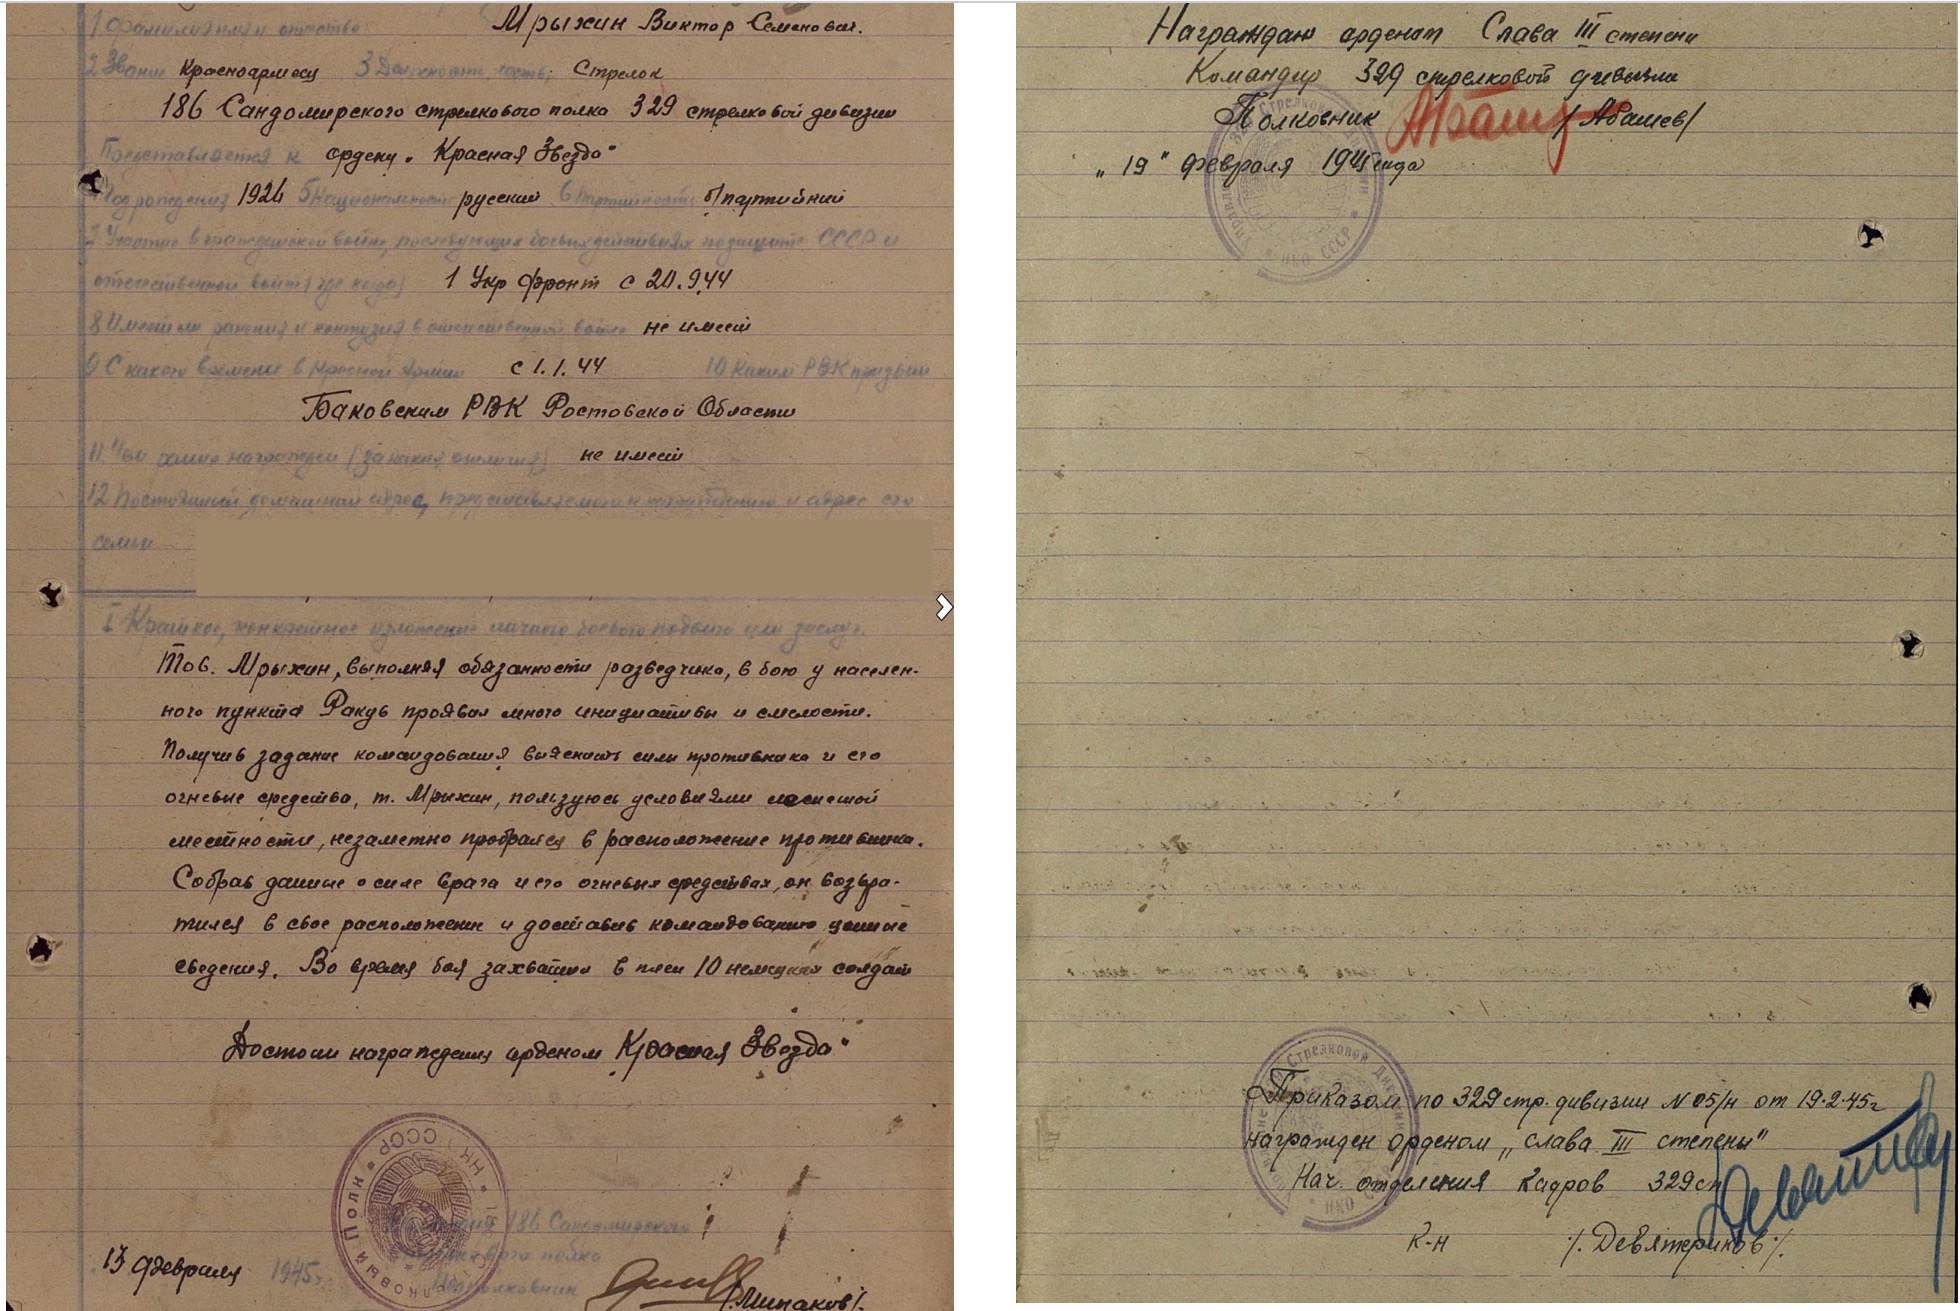 1 Фамилия имя и отчество Мрыхин Виктор Семенович.
2 Звание Красноармеец 3 Должность, часть: Стрелок
186 Сандомирского стрелкового полка 329 стрелковой дивизии
Представляется к ордену „Красная Звезда"
4 Год рождения 1926 5 Национальность русский 6 Партийность б/партийный
7 Участие в гражданской войне, последующих боевых действиях по защите СССР и
отечественной войне (где когда) 1 Укр фронт с 20.9.44
8 Имеет ли ранения и контузия в отечественной войне не имеет
9 С какого времени в Красной Армии с 1.1.44 10 Каким РВК призван
Баковским РВК Ростовской Области
11. Чем ранее награжден (за какия отличия) не имеет
12 Постоянный домашний адрес, представляемого к награждению и адрес его
семьи
I Краткое, конкретное изложение личного боевого подвига или заслуг.
Тов. Мрыхин, выполняя обязанности разведчика, в бою у населен-
ного пункта Ракув проявил много инициативы и смелости.
Получив задание командования выяснить силы противника и его
огневые средства, т. Мрыхин, пользуясь условиями
местности, незаметно пробрался в расположение противника.
Собрав данные о силе врага и его огневых средствах, он возвра-
тился в свое расположение и доставив командованию ценные
сведения. Во время боя захватил в плен 10 немецких солдат
Достоин награждения орденом Красная Звезда"
186 Сандомирского
стрелкового полка
Подполковник
13 февраля 1945г.
Стрелковый Полк * НКО СССР *
Награждаю орденом Слава III степени
Командир 329 стрелковой дивизии
Полковник /Абашев/
„19" февраля 1945 года
Стрелковой Дивизии * НКО СССР *
Приказом по 329 стр. дивизии N 05/н от 19.2.45г
награжден орденом „слава III степени"
Нач. отделения кадров 329 сд
к-н /. Девятериков ./
Стрелковой Дивизии * НКО СССР *